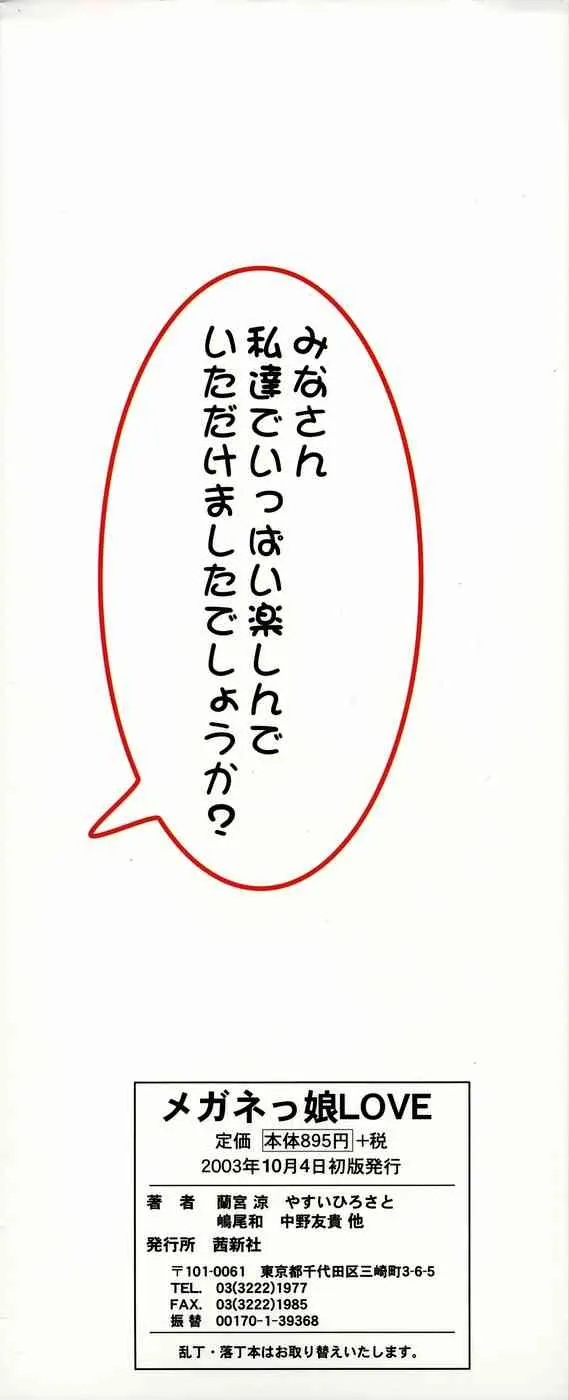 みなさん
私達でいっぱい楽しんで
いただけましたでしょうか?
メガネっ娘LOVE
定価 本体895円+税
2003年10月4日初版発行
著 者 蘭宮 涼 やすいひろさと
嶋尾和 中野友貴 他
発行所 茜新社
〒101-0061 東京都千代田区三崎町3-6-5
TEL. 03(3222)1977
FAX. 03(3222)1985
振替 00170-1-39368
乱丁・落丁本はお取り替えいたします。